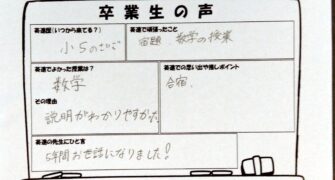 卒業生の声
英進歴(いつから来てる?)
小5のなつ
英進で頑張ったこと
宿題、数学の授業
英進でよかった授業は?
数学
その理由
説明がわかりやすかった
英進での思い出や推しポイント
合宿
英進の先生にひと言
5年間お世話になりました!